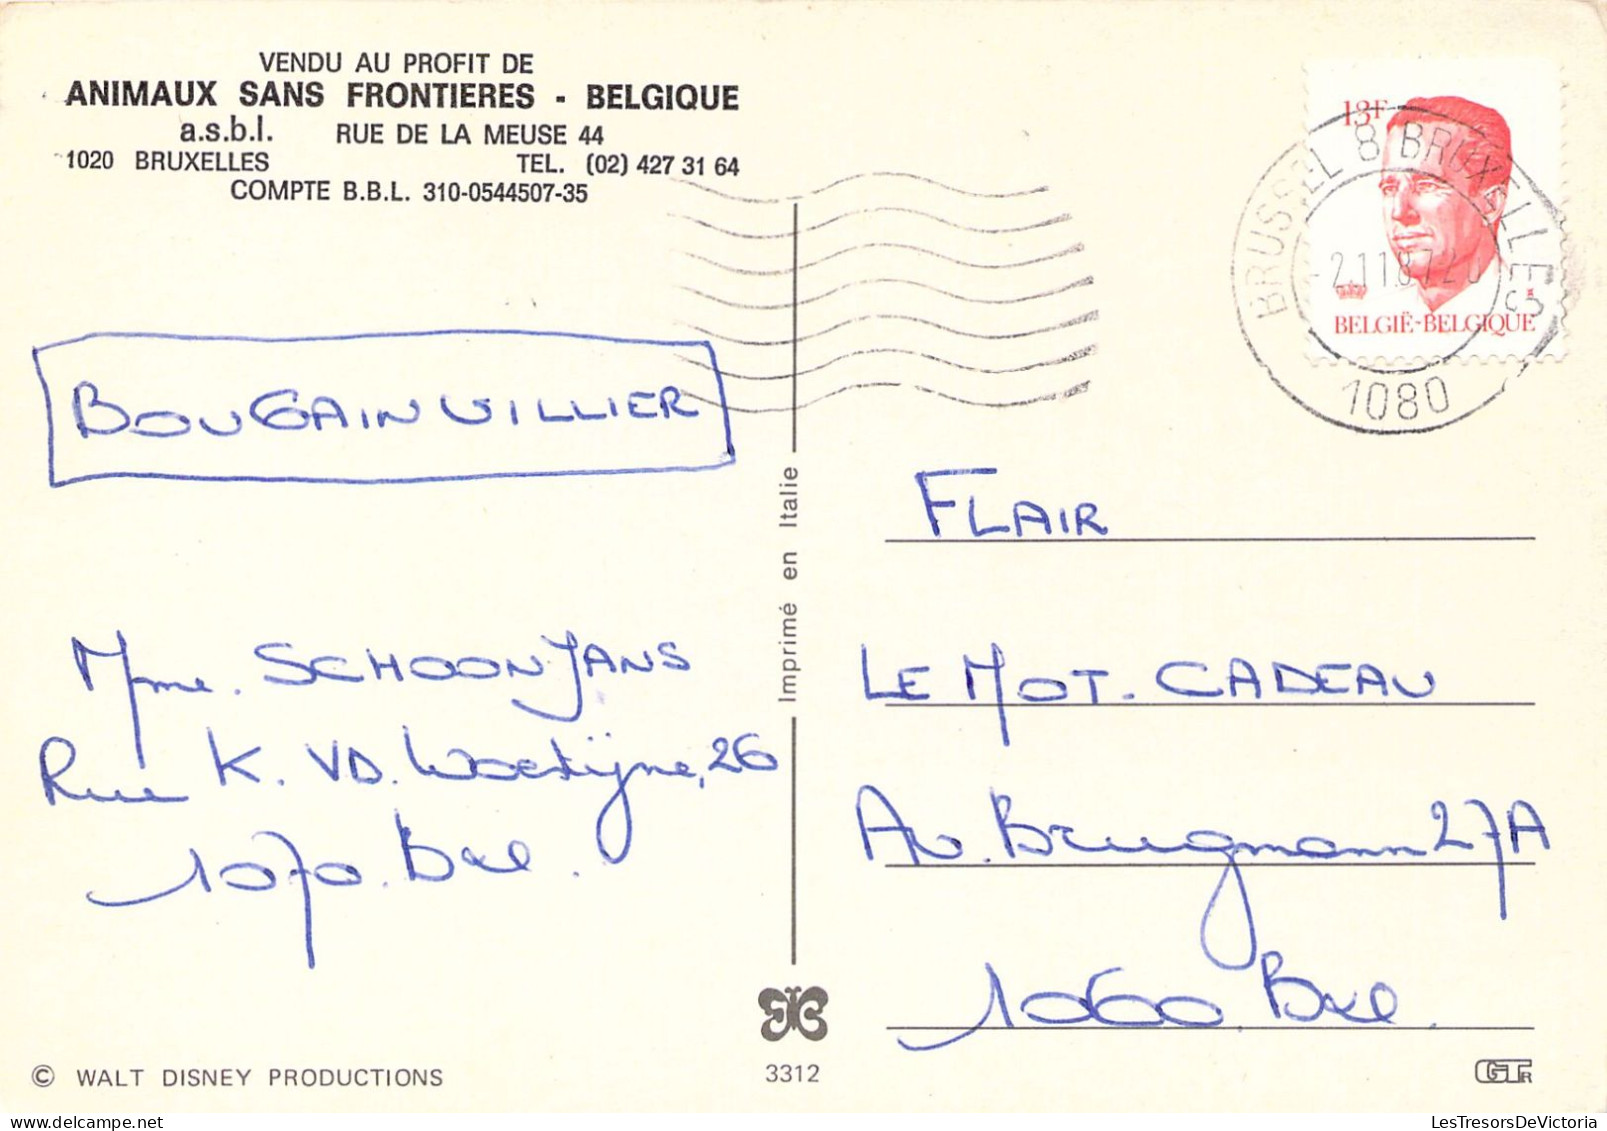 VENDU AU PROFIT DE
ANIMAUX SANS FRONTIERES - BELGIQUE
a.s.b.l. RUE DE LA MEUSE 44
1020 BRUXELLES TEL. (02) 427 31 64
COMPTE B.B.L. 310-0544507-35
13F
BELGIË-BELGIQUE
BRUSSEL 8 BRUXELLES
-2.11.87.20
1080
BOUGAINVILLIER
Mme. SCHOONJANS
Rue K. VD. Woestijne, 26
1070. Bxl.
Imprimé en Italie
FLAIR
LE MOT. CADEAU
Av. Brugmann 27A
1060 Bxl.
© WALT DISNEY PRODUCTIONS
3312
LesTresorsDeVictoria.com